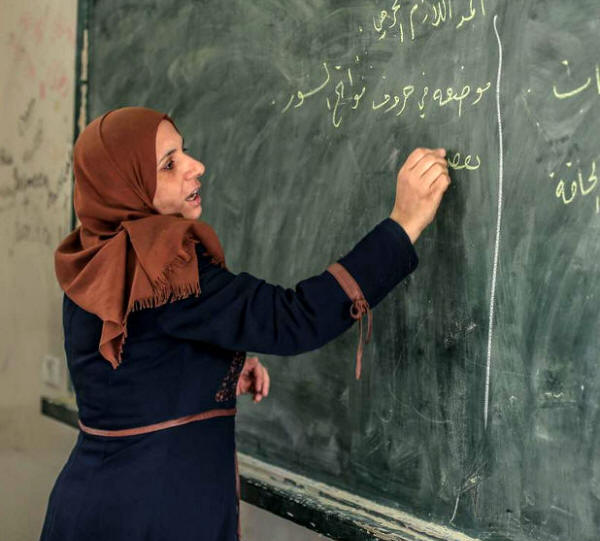 المد اللازم الحرفي
موضعه في حروف فواتح السور.
الحاقة